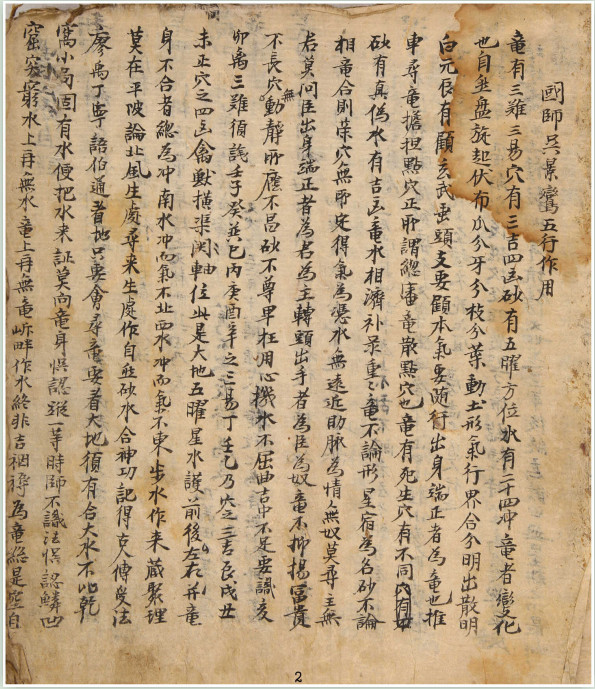 國師吳景鸞五行作用
竜有三難三易穴有三吉四凶砂有五曜方位水有二十四冲竜者變化
也自垂盤旋起伏布爪分牙分枝分葉動土形氣行界合分明出散明
白元辰有顧玄武垂頭支要顧本氣要随行出身端正者為竜也推
車尋竜擔担點穴正所謂總潘竜散點穴也竜有死生穴有不同穴有
砂有真偽水有吉凶竜水相濟补最重竜不論形星宿為名砂不論
相竜合則葬穴無所定得氣為憑水無遠近助脉為情無奴莫尋主無
君莫问臣出身端正者為君為主轉頭出手者為臣為奴竜不抑揚富貴
不長穴無動靜所應不昌砂不尊卑枉用心機水不屈曲吉中不足要識亥
卯离三難須識壬子癸并巳丙庚酉辛之三易丁壬乃穴之三吉艮戌丑
未正穴之四凶禽獣横渠関軸位此是大地五曜星水護前後左右并竜
身不合者総為冲南水冲而氣不北西水冲而氣不東步水作来蔵聚理
莫在平陂論北風生處尋来生處作自莊砂水合神功記得克傳受法
廖禹丁寧語伯通者地只要會尋竜要着大地須有合大水不比乾
窩小局固有水便把水来証莫向竜身悞認蹤一等時師不識法悞認鱗凹
窟窈窮水上再無水竜上再無竜岍畔作水終非吉裀褥為竜総是空自
2